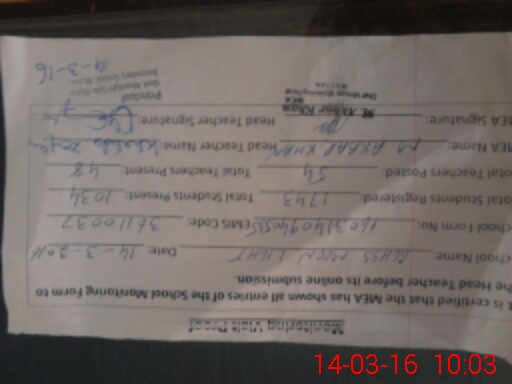 Monitoring Visit Proof
It is certified that the MEA has shown all entries of the School Monitoring Form to
the Head Teacher before its online submission.
School Name: MOON LIGHT Date: 14-3-2016
School Form No: EMIS Code: 36110037
Total Students Registered: 1743 Total Students Present: 1034
Total Teachers Posted: 54 Total Teachers Present: 48
MEA Name: M AKBAR KHAN Head Teacher Name:
MEA Signature: Head Teacher Signature:
M. Akbar Khan
MEA
Principal
14-3-16
14-03-16 10:03